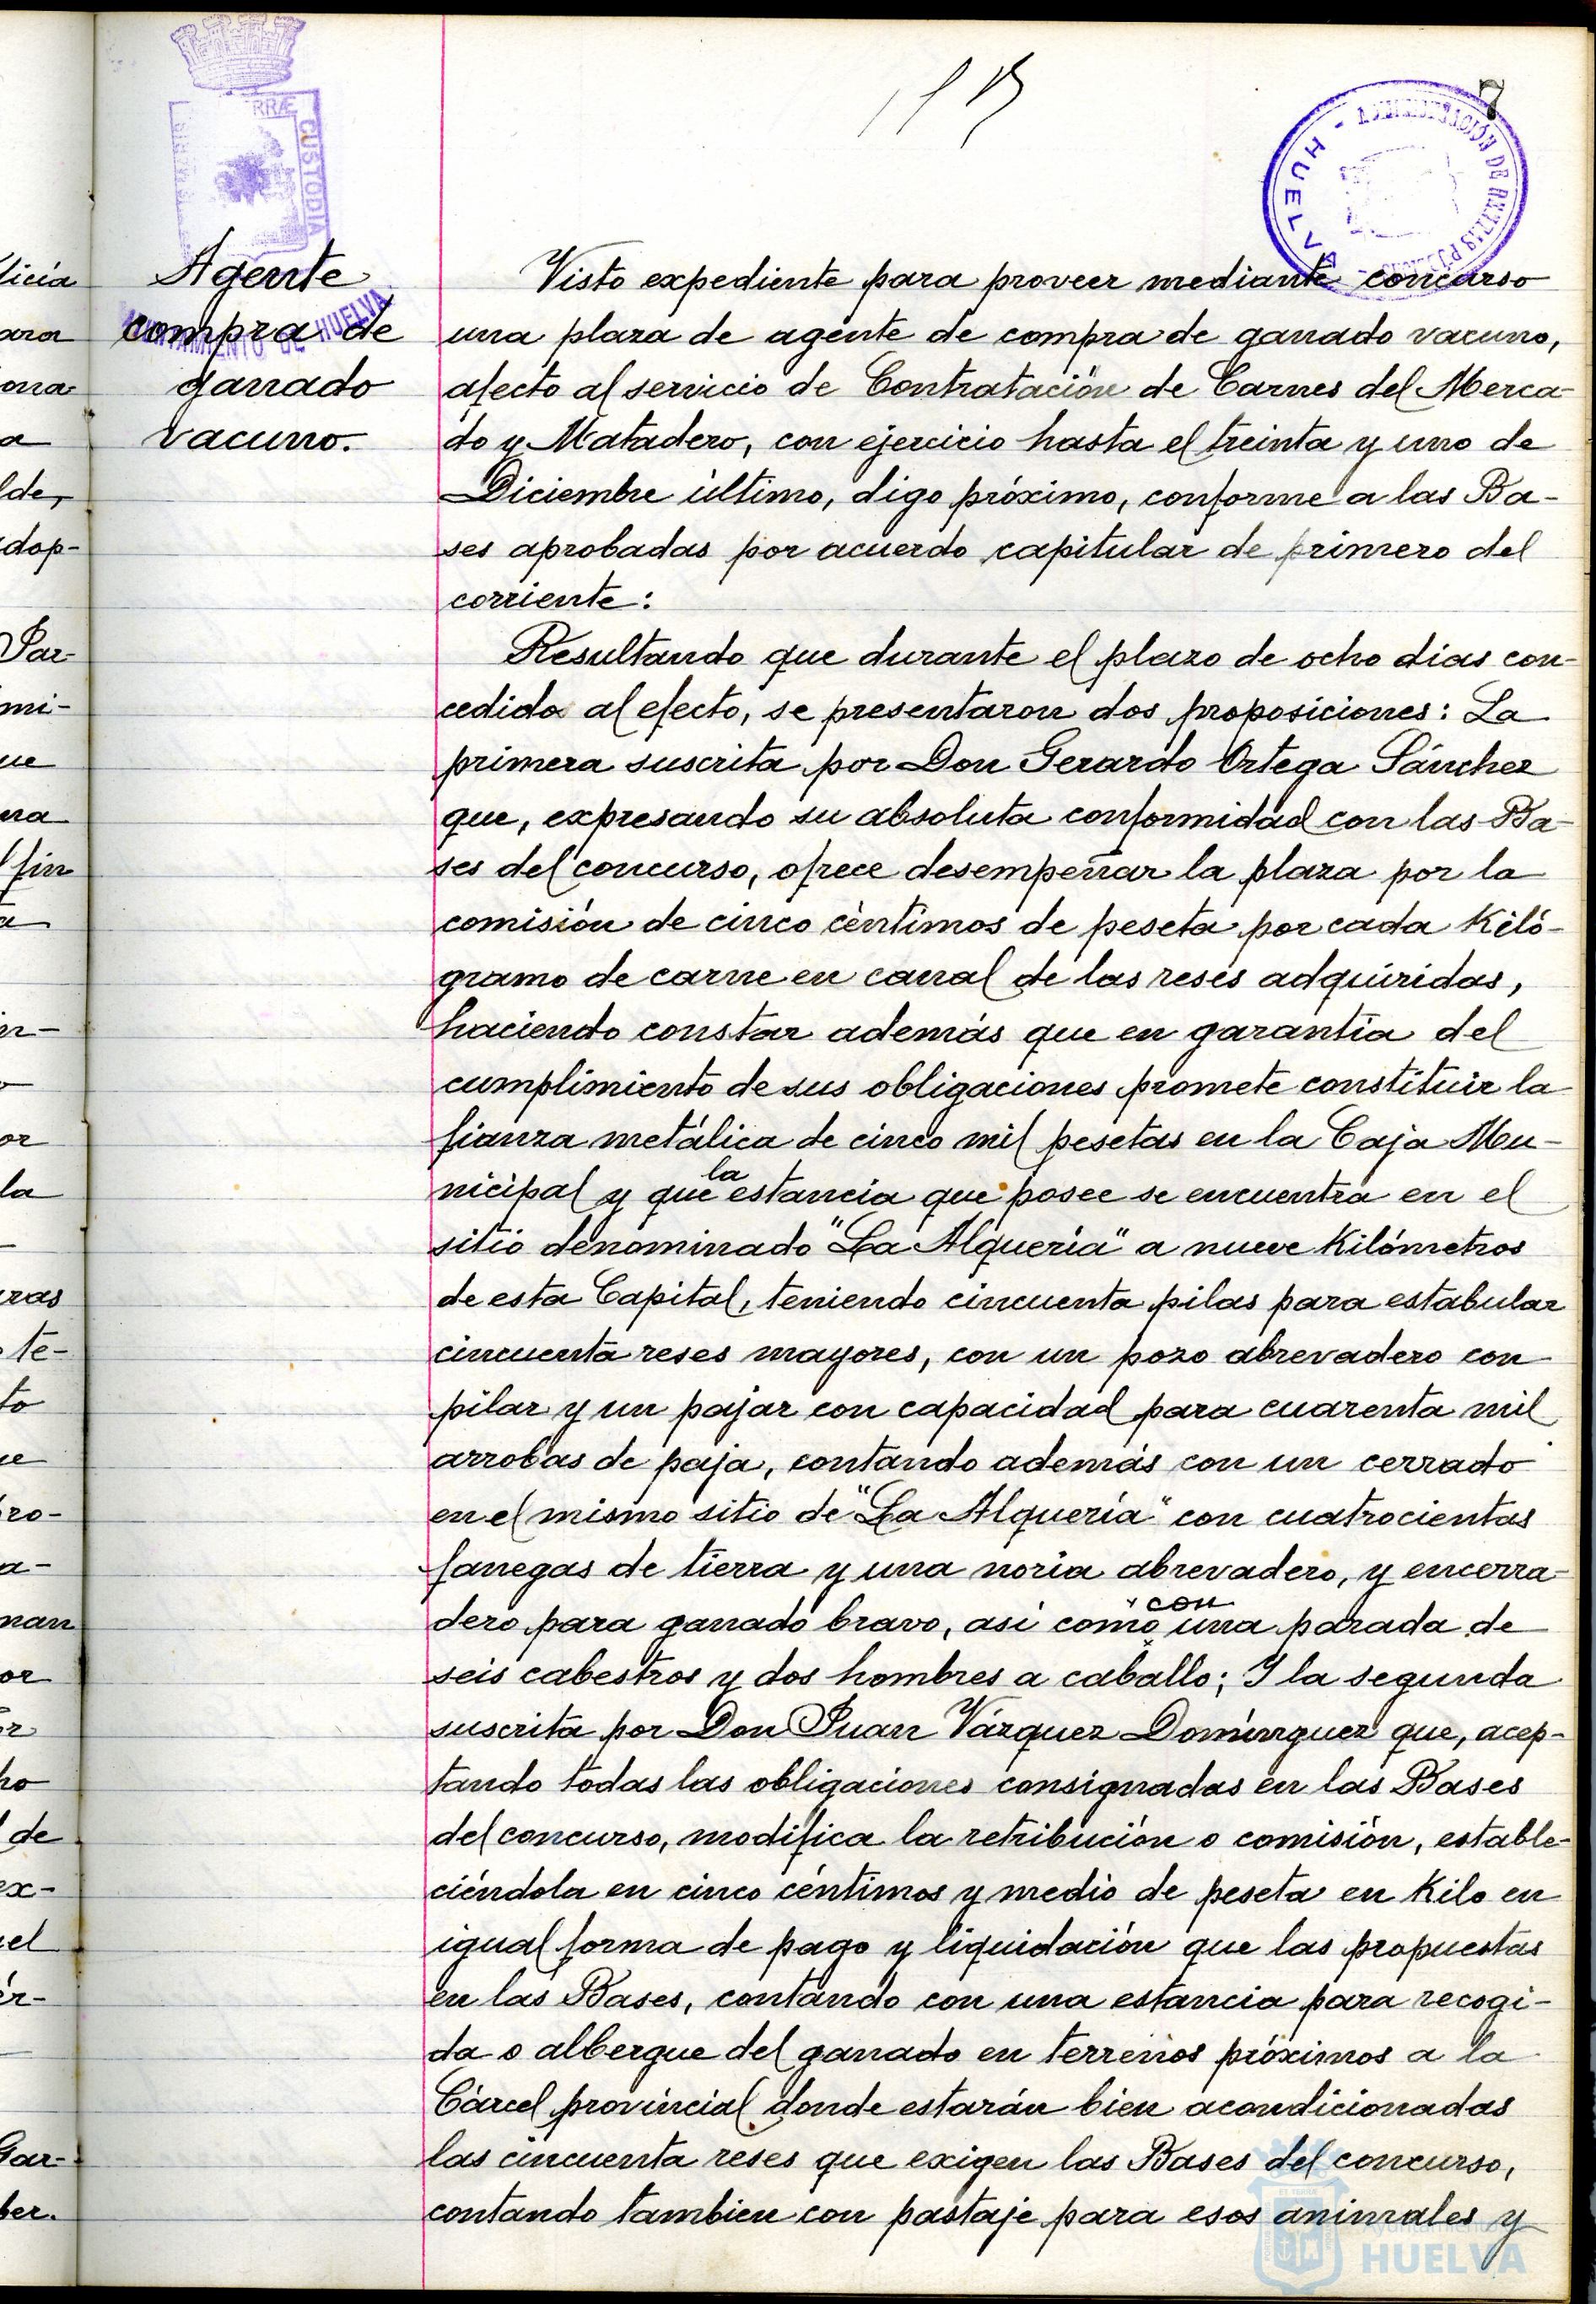 7
RRÆ
CUSTODIA
HUELVA
AYUNTAMIENTO DE HUELVA
Agente
compra de
ganado
vacuno.
Visto expediente para proveer mediante concurso
una plaza de agente de compra de ganado vacuno,
afecto al servicio de Contratación de Carnes del Merca-
do y Matadero, con ejercicio hasta el treinta y uno de
Diciembre último, digo próximo, conforme a las Ba-
ses aprobadas por acuerdo capitular de primero del
corriente:
Resultando que durante el plazo de ocho dias con-
cedido al efecto, se presentaron dos proposiciones: La
primera suscrita por Don Gerardo Ortega Sánchez
que, expresando su absoluta conformidad con las Ba-
ses del concurso, ofrece desempeñar la plaza por la
comisión de cinco céntimos de peseta por cada Kiló-
gramo de carne en canal de las reses adquiridas,
haciendo constar además que en garantía del
cumplimiento de sus obligaciones promete constituir la
fianza metálica de cinco mil pesetas en la Caja Mu-
nicipal y que la estancia que posee se encuentra en el
sitio denominado "La Alquería" a nueve Kilómetros
de esta Capital, teniendo cincuenta pilas para estabular
cincuenta reses mayores, con un pozo abrevadero con
pilar y un pajar con capacidad para cuarenta mil
arrobas de paja, contando además con un cerrado
en el mismo sitio de "La Alquería" con cuatrocientas
fanegas de tierra y una noria abrevadero, y encerra-
dero para ganado bravo, asi como con una parada de
seis cabestros y dos hombres a caballo; Y la segunda
suscrita por Don Juan Vázquez Domínguez que, acep-
tando todas las obligaciones consignadas en las Bases
del concurso, modifica la retribución o comisión, estable-
ciéndola en cinco céntimos y medio de peseta en Kilo en
igual forma de pago y liquidación que las propuestas
en las Bases, contando con una estancia para recogi-
da o albergue del ganado en terrenos próximos a la
Cárcel provincial donde estarán bien acondicionadas
las cincuenta reses que exigen las Bases del concurso,
contando tambien con pastaje para esos animales y
Ayuntamiento
HUELVA